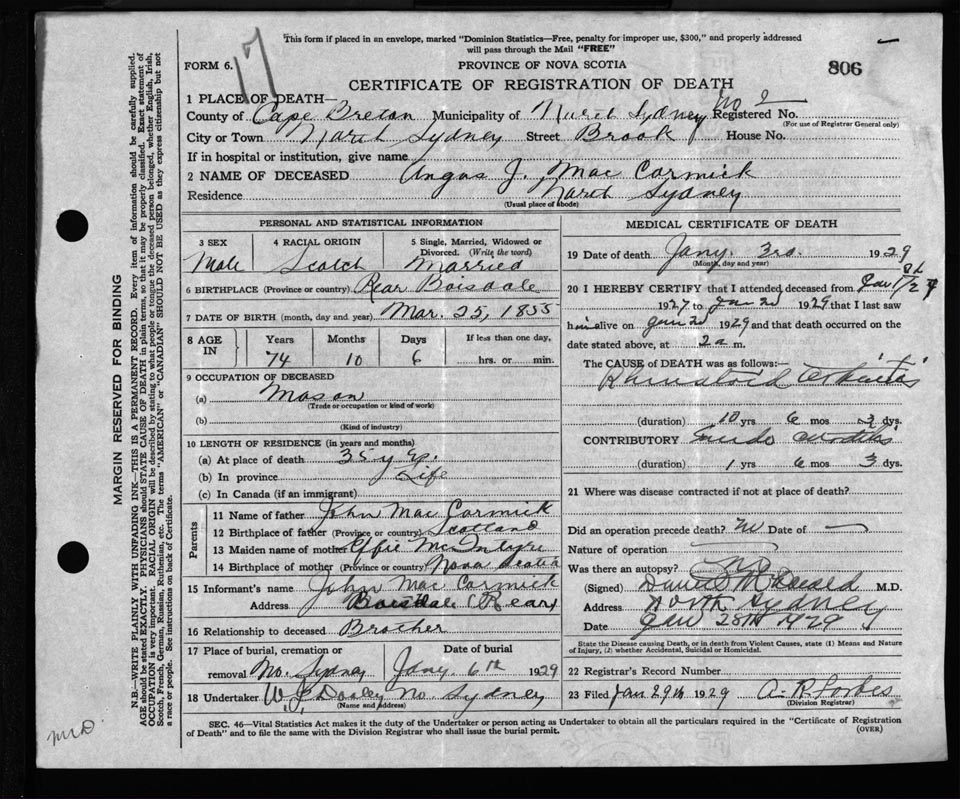 This form if placed in an envelope, marked "Dominion Statistics—Free, penalty for improper use, $300," and properly addressed
will pass through the Mail "FREE"
17
FORM 6. PROVINCE OF NOVA SCOTIA 806
CERTIFICATE OF REGISTRATION OF DEATH
1 PLACE OF DEATH— No 2
County of Cape Breton Municipality of North Sydney Registered No.
(For use of Registrar General only)
City or Town North Sydney Street Brook House No.
If in hospital or institution, give name
2 NAME OF DECEASED Angus J. Mac Cormick
Residence North Sydney
(Usual place of abode)
PERSONAL AND STATISTICAL INFORMATION
3 SEX 4 RACIAL ORIGIN 5 Single, Married, Widowed or
Divorced. (Write the word)
Male Scotch Married
6 BIRTHPLACE (Province or country) Rear Boisdale
7 DATE OF BIRTH (month, day and year) Mar. 25, 1855
8 AGE IN Years Months Days If less than one day,
74 10 6 hrs. or min.
9 OCCUPATION OF DECEASED
(a) Mason
(Trade or occupation or kind of work)
(b)
(Kind of industry)
10 LENGTH OF RESIDENCE (in years and months)
(a) At place of death 35 yrs.
(b) In province Life
(c) In Canada (if an immigrant)
Parents
11 Name of father John Mac Cormick
12 Birthplace of father (Province or country) Scotland
13 Maiden name of mother Effie McIntyre
14 Birthplace of mother (Province or country) Nova Scotia
15 Informant's name John Mac Cormick
Address Boisdale (Rear)
16 Relationship to deceased Brother
17 Place of burial, cremation or Date of burial
removal No. Sydney Jany. 6th 1929
18 Undertaker W. J. Dooley No. Sydney
(Name and address)
MEDICAL CERTIFICATE OF DEATH
19 Date of death Jany. 3rd. 1929
(Month, day and year)
20 I HEREBY CERTIFY that I attended deceased from
1927 to Jan 2d 1929 that I last saw
him alive on Jan 2d 1929 and that death occurred on
date stated above, at 2 a m.
The CAUSE of DEATH was as follows:—
Rheumatoid Arthritis
(duration) 10 yrs 6 mos 3 dys.
CONTRIBUTORY
(duration) 1 yrs 6 mos 3 dys.
21 Where was disease contracted if not at place of death?
Did an operation precede death? No Date of —
Nature of operation
Was there an autopsy? No
(Signed) M.D.
Address North Sydney
Date Jan 28th 1929
State the Disease causing Death, or in death from Violent Causes, state (1) Means and Nature
of Injury, (2) whether Accidental, Suicidal or Homicidal.
22 Registrar's Record Number
23 Filed Jan 29th 1929 A. R. Forbes
(Division Registrar)
SEC. 46—Vital Statistics Act makes it the duty of the Undertaker or person acting as Undertaker to obtain all the particulars required in the "Certificate of Registration
of Death" and to file the same with the Division Registrar who shall issue the burial permit. (OVER)
MARGIN RESERVED FOR BINDING
N.B.—WRITE PLAINLY WITH UNFADING INK—THIS IS A PERMANENT RECORD. Every item of information should be carefully supplied.
AGE should be stated EXACTLY. PHYSICIANS should STATE CAUSE OF DEATH in plain terms, so that it may be properly classified. Exact statement of
OCCUPATION is very important. RACIAL ORIGIN will be described by stating to what people or tongue the deceased person belonged, whether English, Irish,
Scotch, French, German, Russian, Ruthenian, etc. The terms "AMERICAN" or "CANADIAN" SHOULD NOT BE USED as they express citizenship but not
a race or people. See instructions on back of Certificate.